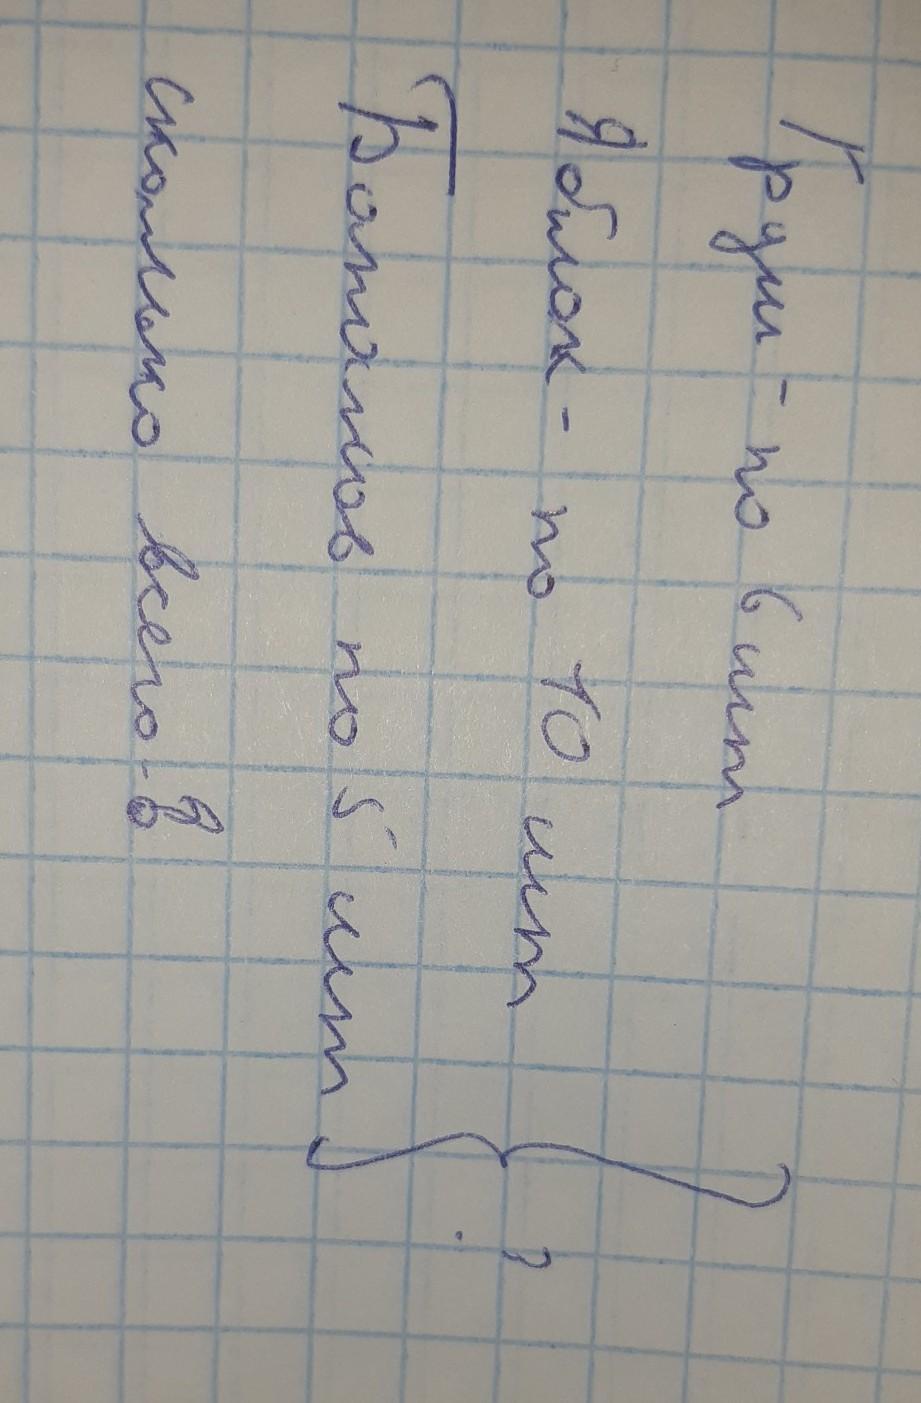 Груш - по 6 шт
Яблок - по 10 шт
Бананов по 5 шт } ?
сколько всего - ?